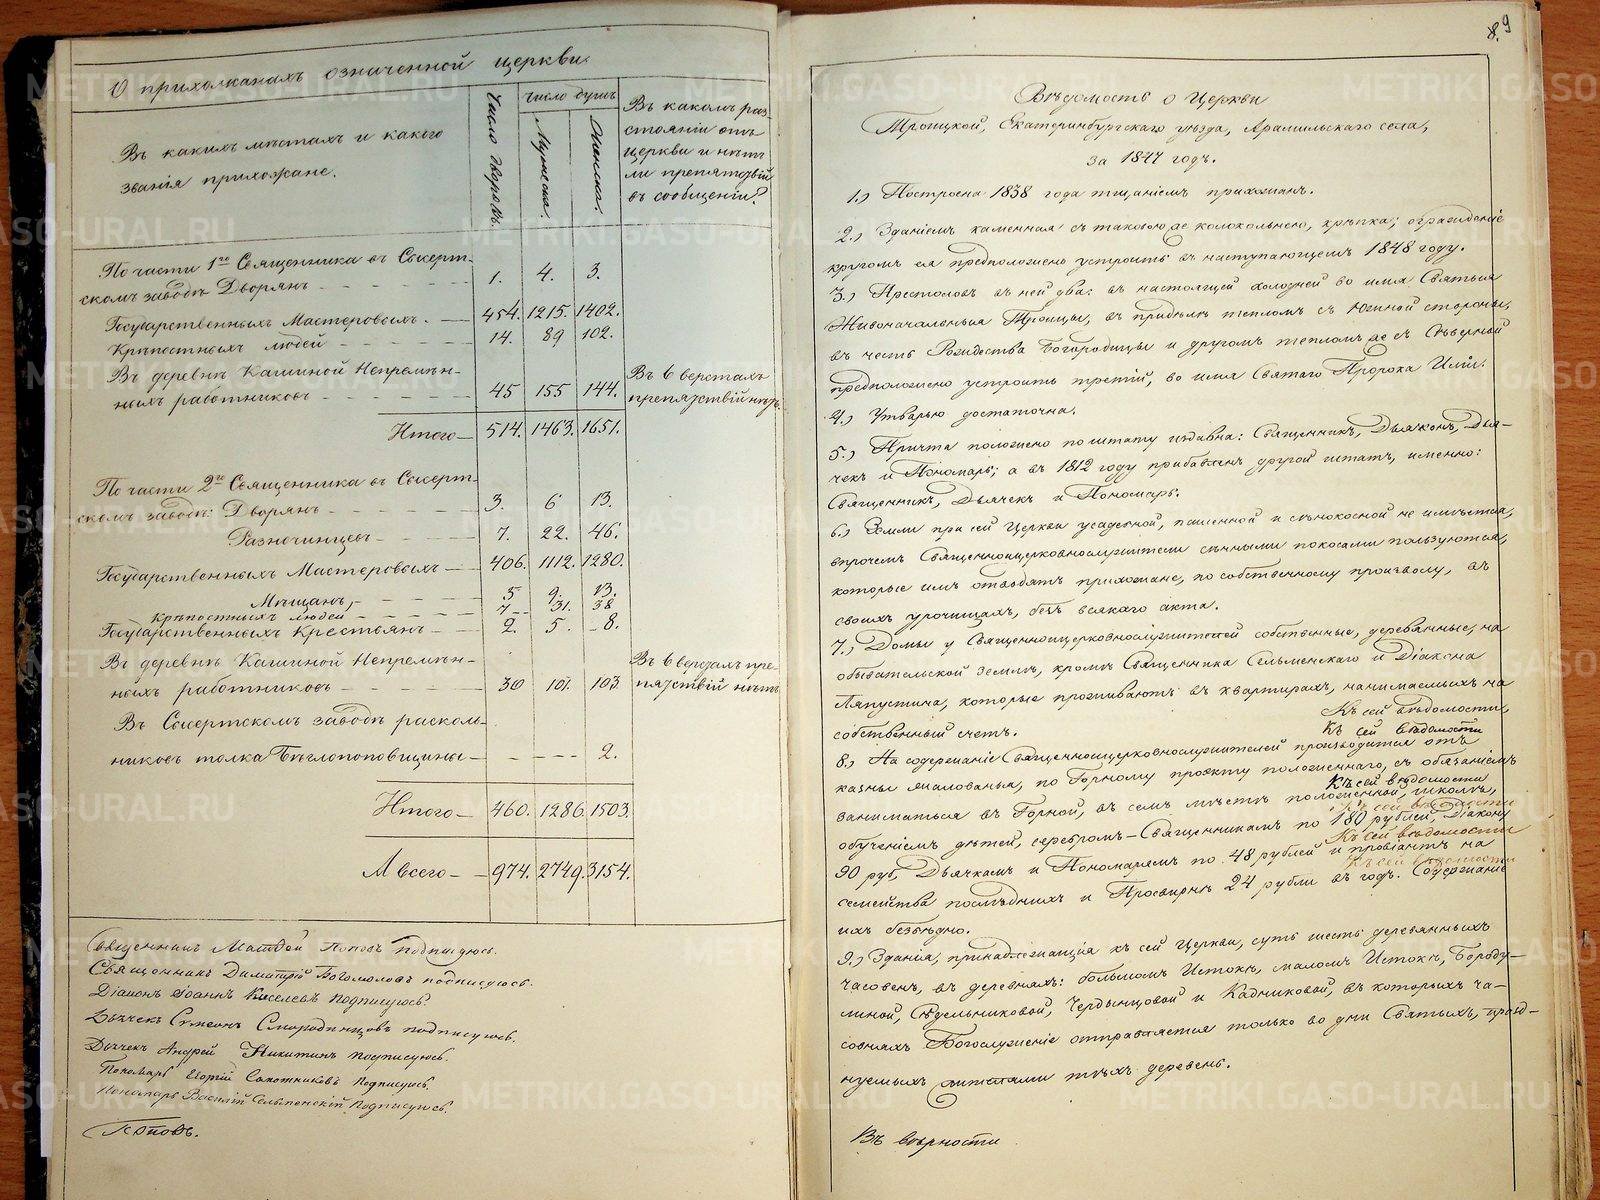 О прихожанахъ означенной церкви.
Въ какихъ мѣстахъ и какого
званія прихожане.
Число дворовъ.
Число душъ
Мужеска.
Женска.
Въ какомъ раз-
стояніи отъ
церкви и нѣтъ
ли препятствій
въ сообщеніи?
По части 1го Священника въ Сысерт-
скомъ заводѣ Дворянъ 1. 4. 3.
Государственныхъ Мастеровыхъ. 454. 1215. 1402.
Крѣпостныхъ людей 14. 89 102.
Въ деревнѣ Кашиной Непремѣн-
ныхъ работниковъ 45 155 144.
Въ 6 верстахъ
препятствій нѣтъ.
Итого 514. 1463. 1651.
По части 2го Священника въ Сысерт-
скомъ заводѣ: Дворянъ 3. 6 13.
Разночинцевъ 7. 22. 46.
Государственныхъ Мастеровыхъ 406. 1112. 1280.
Мѣщанъ, 5 9. 13.
Крѣпостныхъ людей 7 31. 38
Государственныхъ Крестьянъ 2. 5. 8.
Въ деревнѣ Кашиной Непремѣн-
ныхъ работниковъ 30 101. 103
Въ 6 верстахъ пре-
пятствій нѣтъ
Въ Сысертскомъ заводѣ расколь-
никовъ толка Бѣглопоповщины 2.
Итого 460. 1286 1503.
А всего 974. 2749. 3154.
Священникъ Матѳей Поповъ подписуюсь.
Священникъ Димитрій Богомоловъ подписуюсь.
Діаконъ Іоаннъ Киселевъ подписуюсь.
Дьячекъ Симеонъ Смородинцовъ подписуюсь.
Дьячекъ Андрей Никитинъ подписуюсь.
Пономарь Георгій Сапожниковъ подписуюсь.
Пономарь Василій Сельменскій подписуюсь.
Поповъ.
8. 9
Вѣдомость о Церкви
Троицкой, Екатеринбургскаго уѣзда, Арамильскаго села,
за 1847 годъ.
1.) Построена 1838 года тщаніемъ прихожанъ.
2.) Зданіемъ каменная съ таковою же колокольнею, крѣпка; огражденіе
кругомъ ея предположено устроить въ наступающемъ 1848 году.
3.) Престоловъ въ ней два: въ настоящей холодной во имя Святыя
Живоначальныя Троицы, въ придѣлѣ тепломъ съ Южной стороны,
въ честь Рождества Богородицы и другомъ тепломъ же съ Сѣверной
предположено устроить третій, во имя Святаго Пророка Иліи.
4.) Утварью достаточна.
5.) Причта положено по штату издавна: Священникъ, Дьяконъ, Дья-
чекъ и Пономарь; а въ 1812 году прибавленъ другой штатъ, именно:
Священникъ, Дьячекъ и Пономарь.
6.) Земли при сей Церкви усадебной, пашенной и сѣнокосной не имѣется,
впрочемъ Священноцерковнослужители сѣнными покосами пользуются,
которые имъ отводятъ прихожане, по собственному произволу, въ
своихъ урочищахъ, безъ всякаго акта.
7.) Домы у Священноцерковнослужителей собственные, деревянные, на
обывательской землѣ, кромѣ Священника Сельменскаго и Діакона
Ляпустина, которые проживаютъ въ квартирахъ, нанимаемыхъ на
Къ сей вѣдомости
собственный счетъ.
Къ сей вѣдомости
8.) На содержаніе Священноцерковнослужителей производится отъ
казны жалованья, по Горному проэкту положеннаго, съ обязаніемъ
Къ сей вѣдомости
заниматься въ Горной, въ семъ мѣстѣ положенной, школѣ,
Къ сей вѣдомости
обученіемъ дѣтей, серебромъ – Священникамъ по 180 рублей, Діакону
Къ сей вѣдомости
90 руб., Дьячкамъ и Пономарямъ по 48 рублей и провіантъ на
Къ сей вѣдомости
семейства послѣднихъ и Просвирнѣ 24 рубли въ годъ. Содержаніе
ихъ безбѣдно.
9.) Зданія, принадлежащія къ сей Церкви, суть шесть деревянныхъ
часовенъ, въ деревняхъ: большомъ Истокѣ, маломъ Истокѣ, Бороду-
линой, Сѣдельниковой, Чердынцовой и Кадниковой, въ которыхъ ча-
совняхъ Богослуженіе отправляется только во дни Святыхъ, празд-
нуемыхъ жителями тѣхъ деревень.
Въ вѣрности
METRIKI.GASO-URAL.RU